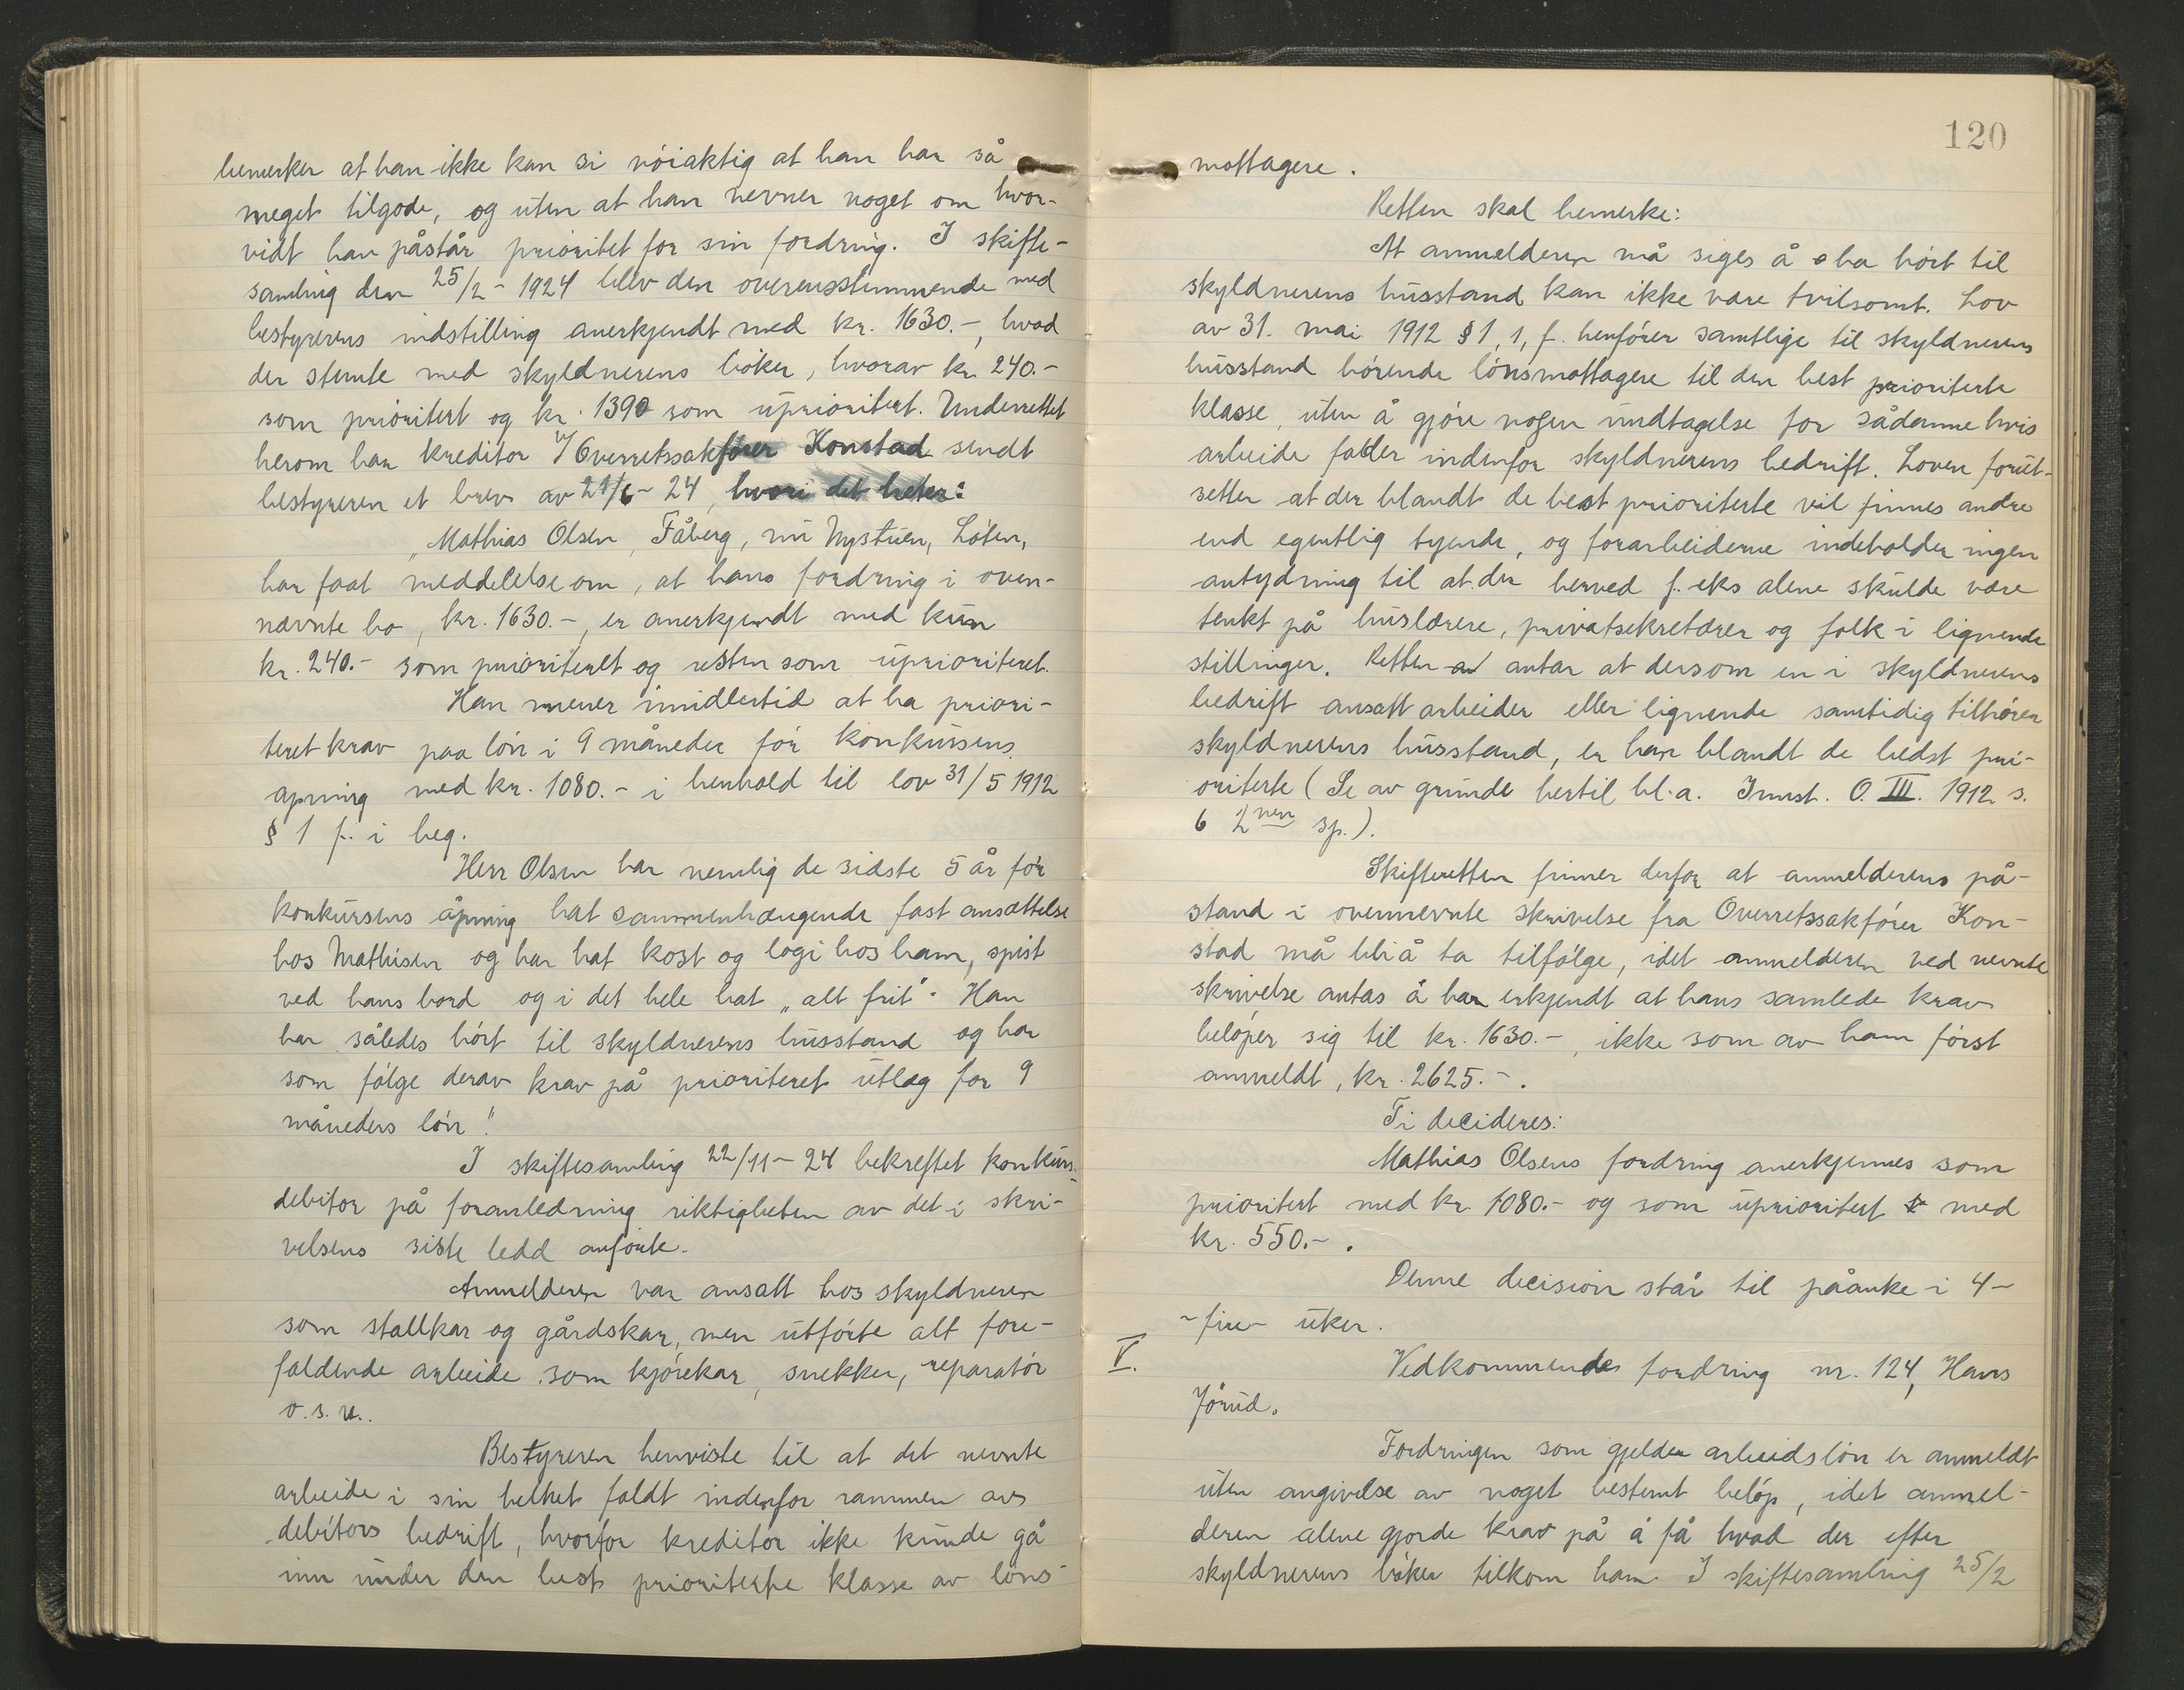 bemerker at han ikke kan si nöiaktig at han har så
meget tilgode, og uten at han nevner noget om hvor-
vidt han påstår prioritet for sin fordring. I skifte-
samling den 25/2 - 1924 blev den overensstemmende med
bestyrerens indstilling anerkjendt med kr. 1630.-, hvad
der stemte med skyldnerens böker, hvorav kr. 240.-
som prioritert og kr. 1390 som uprioritert. Underrettet
herom har kreditor v/ Overretssakförer Konstad sendt
bestyreren et brev av 21/6 - 24, hvori det heter:
„Mathias Olsen, Fåberg, nu Nystuen, Löten,
har faat meddelelse om, at hans fordring i oven-
nævnte bo, kr. 1630.-, er anerkjendt med kun
kr. 240.- som prioriteret og resten som uprioriteret.
Han mener imidlertid at ha priori-
teret krav paa lön i 9 måneder för konkursens
apning med kr. 1080.- i henhold til lov 31/5 1912
§ 1 f. i beg.
Herr Olsen har nemlig de sidste 5 år för
konkursens åpning hat sammenhængende fast ansættelse
hos Mathisen og har hat kost og logi hos ham, spist
ved hans bord og i det hele hat „alt frit". Han
har således hört til skyldnerens husstand og har
som fölge derav krav på prioriteret utlæg for 9
måneders lön."
I skiftesamling 22/11 - 24 bekreftet konkurs-
debitor på foranledning riktigheten av det i skri-
velsens siste ledd anförte.
Anmelderen var ansatt hos skyldneren
som stallkar og gårdskar, men utförte alt fore-
faldende arbeide som kjörekar, snekker, reparatör
o. s. v..
Bestyreren henviste til at det nevnte
arbeide i sin helhet faldt indenfor rammen av
debitors bedrift, hvorfor kreditor ikke kunde gå
inn under den best prioriterte klasse av löns-
120
mottagere.
Retten skal bemerke:
At anmelderen må siges å ha hört til
skyldnerens husstand kan ikke være tvilsomt. Lov
av 31. mai 1912 § 1, 1, f. henförer samtlige til skyldnerens
husstand hörende lönsmottagere til den best prioriterte
klasse, uten å gjöre nogen undtagelse for sådanne hvis
arbeide falder indenfor skyldnerens bedrift. Loven forut-
setter at der blandt de best prioriterte vil finnes andre
end egentlig tyende, og forarbeiderne indeholder ingen
antydning til at der herved f. eks alene skulde være
tenkt på huslærere, privatsekretærer og folk i lignende
stillinger. Retten antar at dersom en i skyldnerens
bedrift ansatt arbeider eller lignende samtidig tilhörer
skyldnerens husstand, er han blandt de bedst pri-
oriterte (Se av grunde hertil bl.a. Innst. O. III. 1912 s.
6 2nen sp.).
Skifteretten finner derfor at anmelderens på-
stand i ovennevnte skrivelse fra Overretssakförer Kon-
stad må bli å ta tilfölge, idet anmelderen ved nevnte
skrivelse antas å ha erkjendt at hans samlede krav
belöper sig til kr. 1630.-, ikke som av ham först
anmeldt, kr. 2625.-.
Ti decideres:
Mathias Olsens fordring anerkjennes som
prioritert med kr. 1080.- og som uprioritert med
kr. 550.-.
Denne decision står til påanke i 4-
-fire- uker.
V.
Vedkommende fordring nr. 124, Hans
Jörud.
Fordringen som gjelder arbeidslön er anmeldt
uten angivelse av noget bestemt belöp, idet anmel-
deren alene gjorde krav på å få hvad der efter
skyldnerens böker tilkom ham. I skiftesamling 25/2